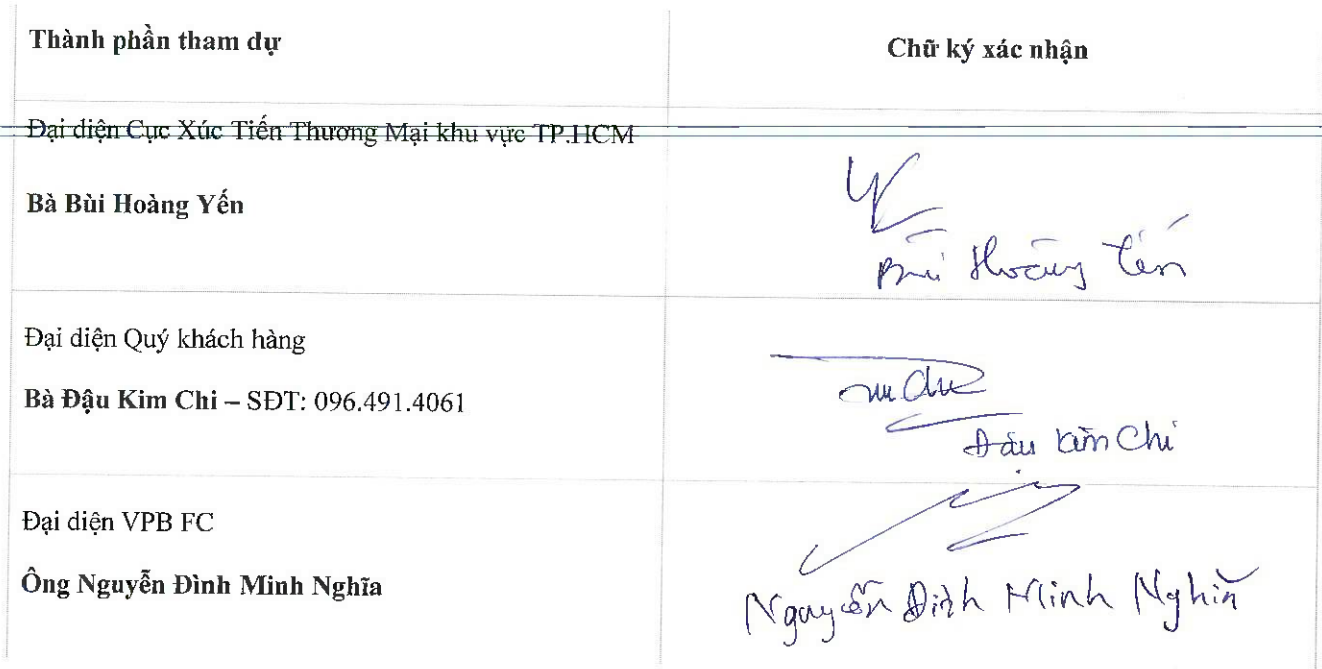 Thành phần tham dự
Chữ ký xác nhận
Đại diện Cục Xúc Tiến Thương Mại khu vực TP.HCM
Bà Bùi Hoàng Yến
Bùi Hoàng Yến
Đại diện Quý khách hàng
Bà Đậu Kim Chi – SĐT: 096.491.4061
Đậu Kim Chi
Đại diện VPB FC
Ông Nguyễn Đình Minh Nghĩa
Nguyễn Đình Minh Nghĩa